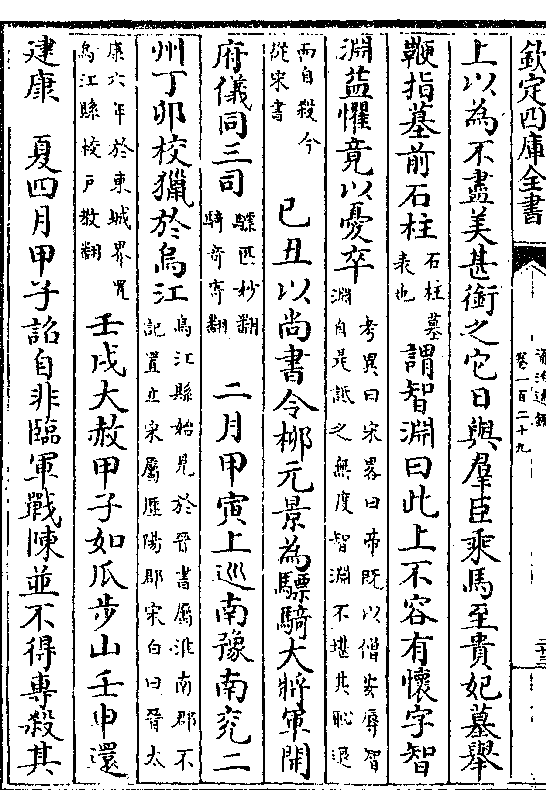 欽定四庫全書
資治通鑑
卷一百二十九
二十三
上以為不盡美甚銜之它日與羣臣乘馬至貴妃墓舉
鞭指墓前石柱石柱墓表也謂智淵曰此上不容有懷字智
淵益懼竟以憂卒考異曰宋畧曰帝既以僧安辱智淵自是詆之無度智淵不堪其恥退
而自殺今從宋書 已丑以尚書令柳元景為驃騎大將軍開
府儀同三司驃匹妙翻騎奇寄翻 二月甲寅上巡南豫南兗二
州丁卯校獵於烏江烏江縣始見於晉書屬淮南郡不記置立宋屬歷陽郡宋白曰晉太
康六年於東城界置烏江縣校户教翻 壬戌大赦甲子如瓜步山壬申還
建康 夏四月甲子詔自非臨軍戰陳並不得專殺其